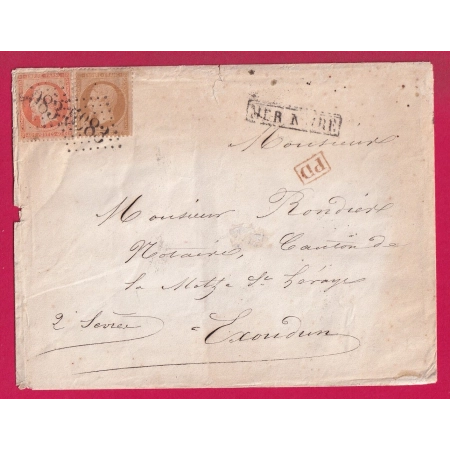 MER NOIRE
Monsieur
PD
Monsieur Rondier
Notaire, Canton de
la Mothe St Héraye
2 Sèvres Exoudun